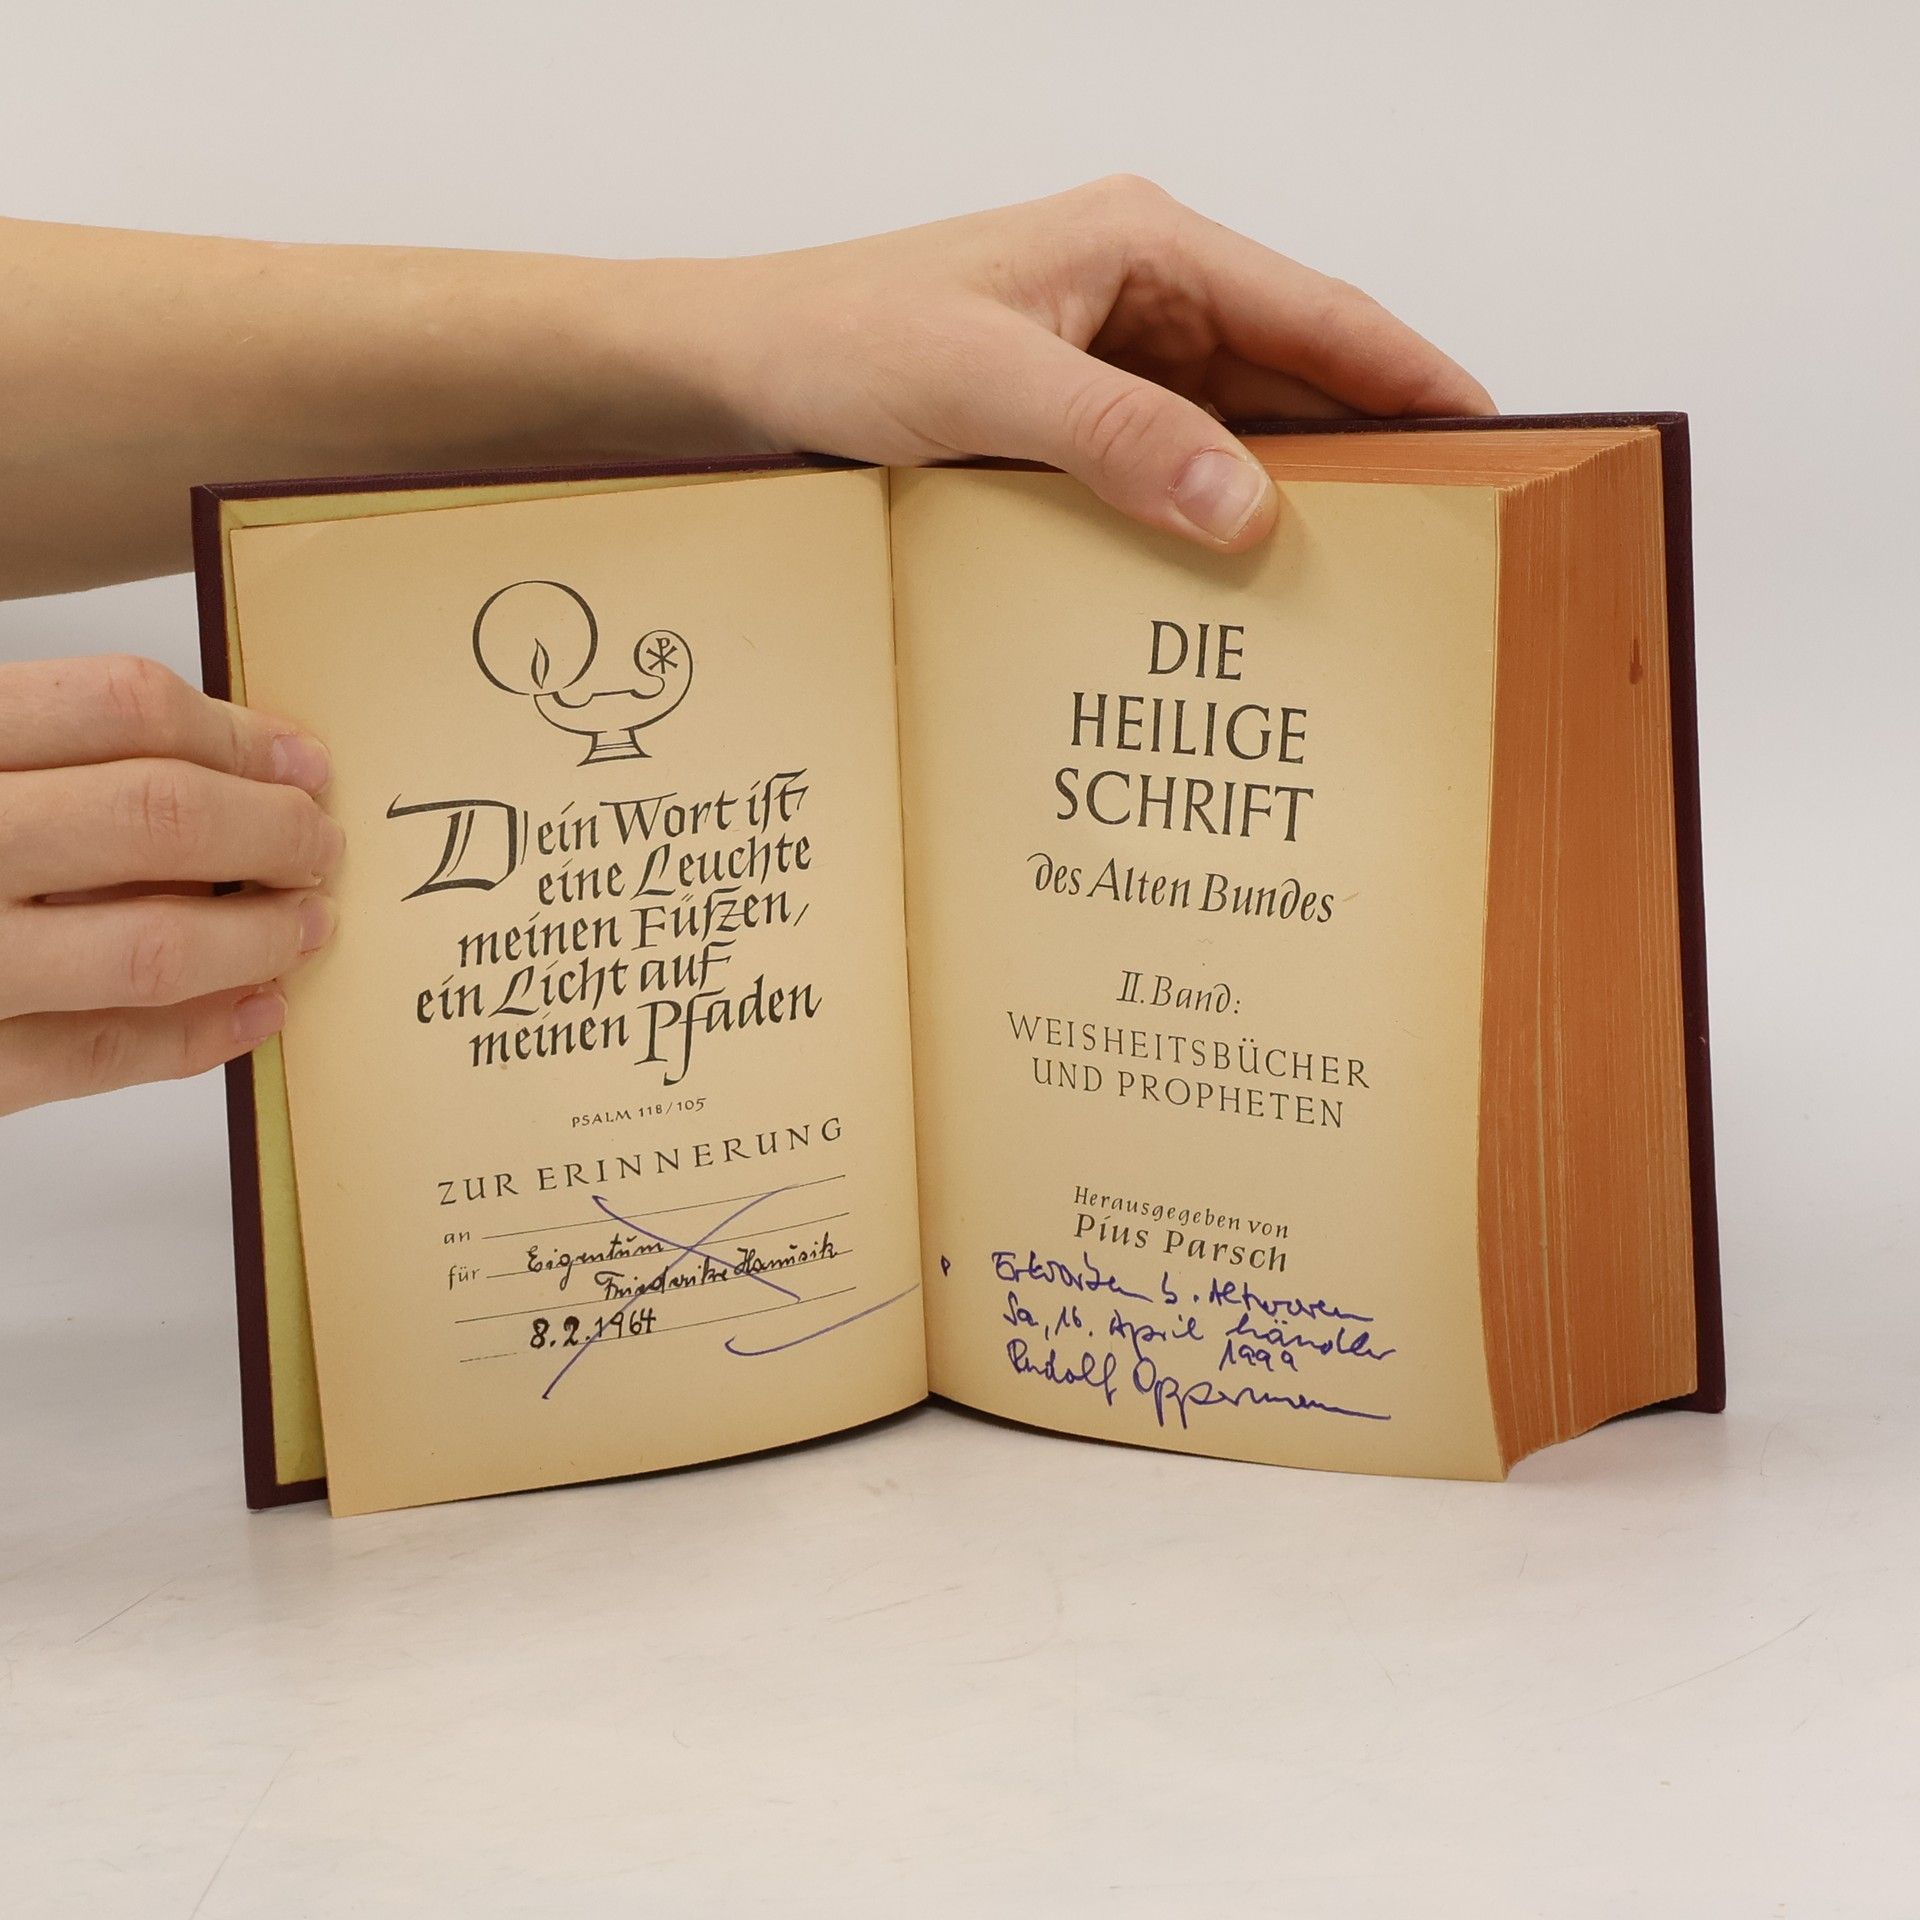 Dein Wort ist
eine Leuchte
meinen Füßen,
ein Licht auf
meinen Pfaden
PSALM 118/105
ZUR ERINNERUNG
an
Eigentum
für
Friederike Hanusik
8.2.1964
DIE
HEILIGE
SCHRIFT
des Alten Bundes
II. Band:
WEISHEITSBÜCHER
UND PROPHETEN
Herausgegeben von
Pius Parsch
Erworben b. Altwaren
Sa, 16. April händler
1999
Rudolf Oppermann